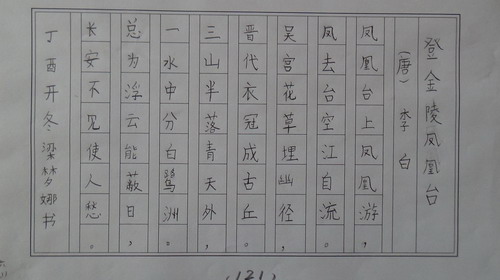 登金陵凤凰台
(唐) 李白
凤凰台上凤凰游，
凤去台空江自流。
吴宫花草埋幽径，
晋代衣冠成古丘。
三山半落青天外，
一水中分白鹭洲。
总为浮云能蔽日，
长安不见使人愁。
丁酉开冬梁梦娜书
(121)